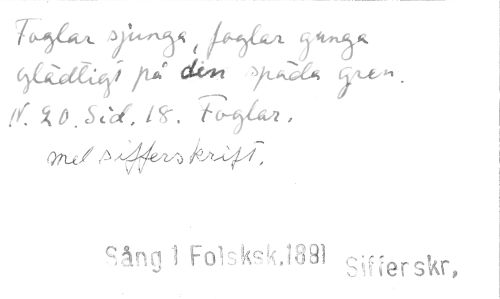 Foglar sjunga, foglar gunga
gladtligt på den späda gren.
N. 20. Sid. 18. Foglar.
mel sifferskrift.
Sång i Folsksk.1881 Sifferskr,